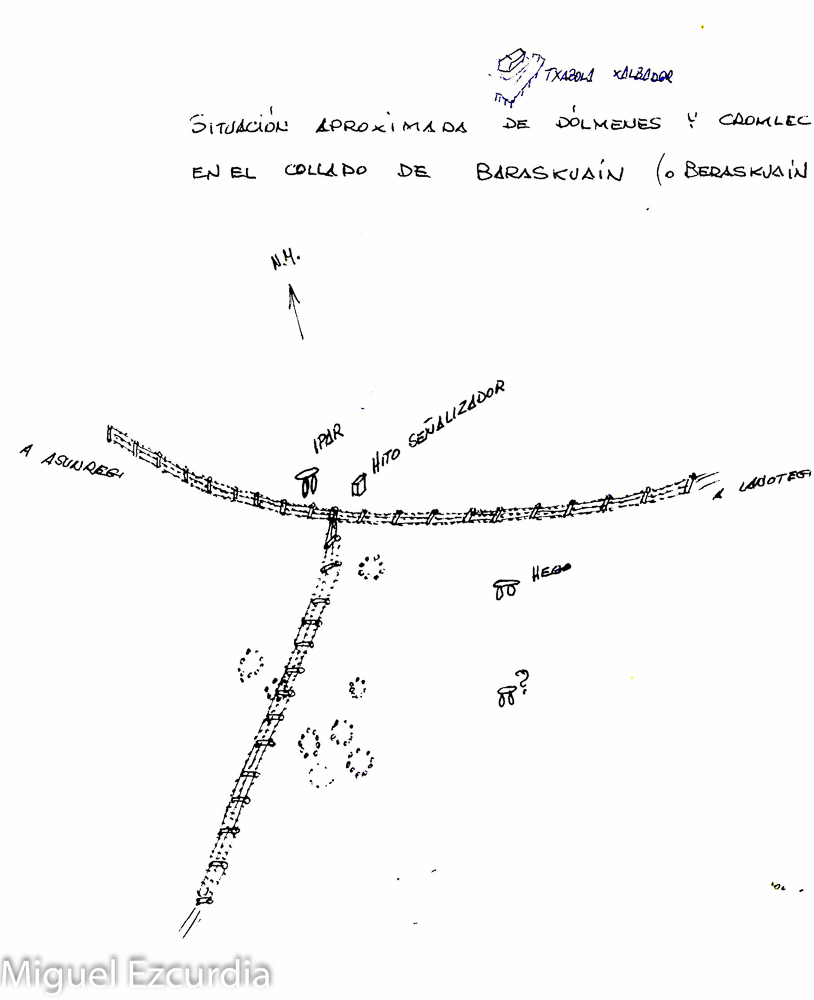 TXABOLA XALBADOR
SITUACIÓN APROXIMADA DE DÓLMENES Y CROMLEC
EN EL COLLADO DE BARASKUAÍN (o BERASKUAÍN
N.M.
IPAR
HITO SEÑALIZADOR
A ASUNREGI
A LANOTEGI
HEGO
?
Miguel Ezcurdia